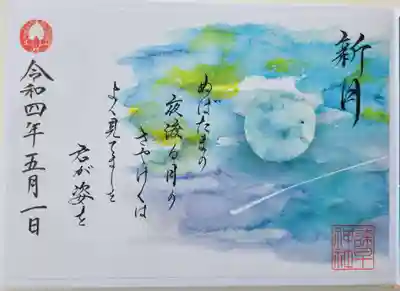 新月
ぬばたまの
夜渡る月の
さやけくは
よく見てましを
君が姿を
令和四年五月一日
諫早神社